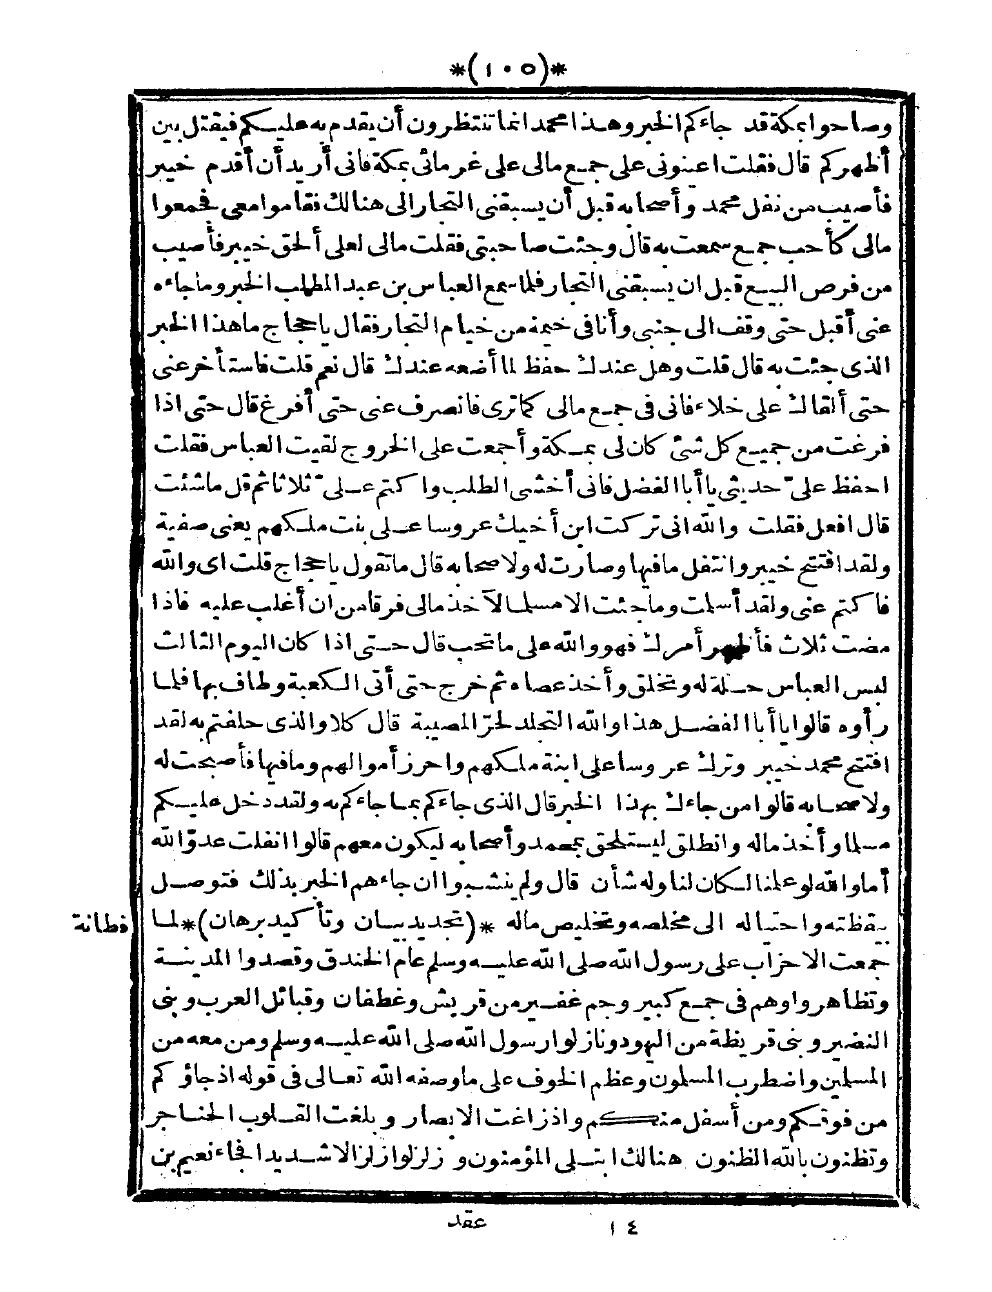 *(١٠٥)*
وصاحوا بمكة قد جاءكم الخبر وهذا محمد انما تنتظرون أن يقدم به عليكم فيقتل بين
أظهركم قال فقلت اعينونى على جمع مالى على غرمائى بمكة فانى أريد أن أقدم خيبر
فأصيب من نفل محمد وأصحابه قبل أن يسبقنى التجار الى هنالك نقاموا معى فجمعوا
مالى كأحب جمع سمعت به قال وجئت صاحبتى فقلت مالى لعلى ألحق خيبر فأصيب
من فرص البيع قبل ان يسبقنى التجار فلما سمع العباس بن عبد المطلب الخبر وما جاءه
عنى أقبل حتى وقف الى جنبى وأنا فى خيمة من خيام التجار فقال يا حجاج ما هذا الخبر
الذى جئت به قال قلت وهل عندك حفظ لما أضعه عندك قال نعم قلت فاستأخر عنى
حتى ألقاك على خلاء فانى فى جمع مالى كما ترى فانصرف عنى حتى أفرغ قال حتى اذا
فرغت من جميع كل شئ كان لى بمكة وأجمعت على الخروج لقيت العباس فقلت
احفظ علىّ حديثى يا أبا الفضل فانى أخشى الطلب واكتم علىّ ثلاثا ثم قل ما شئت
قال افعل فقلت والله انى تركت ابن أخيك عروسا على بنت ملكهم يعنى صفية
ولقد افتتح خيبر وانتفل ما فيها وصارت له ولاصحابه قال ما تقول يا حجاج قلت اى والله
فاكتم عنى ولقد أسلمت وما جئت الا مسلما لآخذ مالى فرقا من ان أغلب عليه فاذا
مضت ثلاث فأظهر أمرك فهو والله على ما تحب قال حتى اذا كان اليوم الثالث
لبس العباس حلة له وتخلق وأخذ عصاه ثم خرج حتى أتى الكعبة وطاف بها فلما
رأوه قالوا يا أبا الفضل هذا والله التجلد لحرّ المصيبة قال كلا والذى حلفتم به لقد
افتتح محمد خيبر وترك عروسا على ابنة ملكهم واحرز أموالهم وما فيها فأصبحت له
ولاصحابه قالوا من جاءك بهذا الخبر قال الذى جاءكم بما جاءكم به ولقد دخل عليكم
مسلما وأخذ ماله وانطلق ليستلحق بمحمد وأصحابه ليكون معهم قالوا انفلت عدوّ الله
أما والله لو علمنا لكان لنا وله شأن قال ولم ينشبوا ان جاءهم الخبر بذلك فتوصل
بيقظته واحتياله الى مخلصه وتخليص ماله *(تجديد بيان وتأكيد برهان)* لما
فطانة
جمعت الاحزاب على رسول الله صلى الله عليه وسلم عام الخندق وقصدوا المدينة
وتظاهروا وهم فى جمع كبير وجم غفير من قريش وغطفان وقبائل العرب وبنى
النضير وبنى قريظة من اليهود ونازلوا رسول الله صلى الله عليه وسلم ومن معه من
المسلمين واضطرب المسلمون وعظم الخوف على ما وصفه الله تعالى فى قوله اذ جاؤكم
من فوقكم ومن أسفل منكم واذ زاغت الابصار وبلغت القلوب الحناجر
وتظنون بالله الظنون هنالك ابتلى المؤمنون وزلزلوا زلزالا شديدا فجاء نعيم بن
١٤ عقد